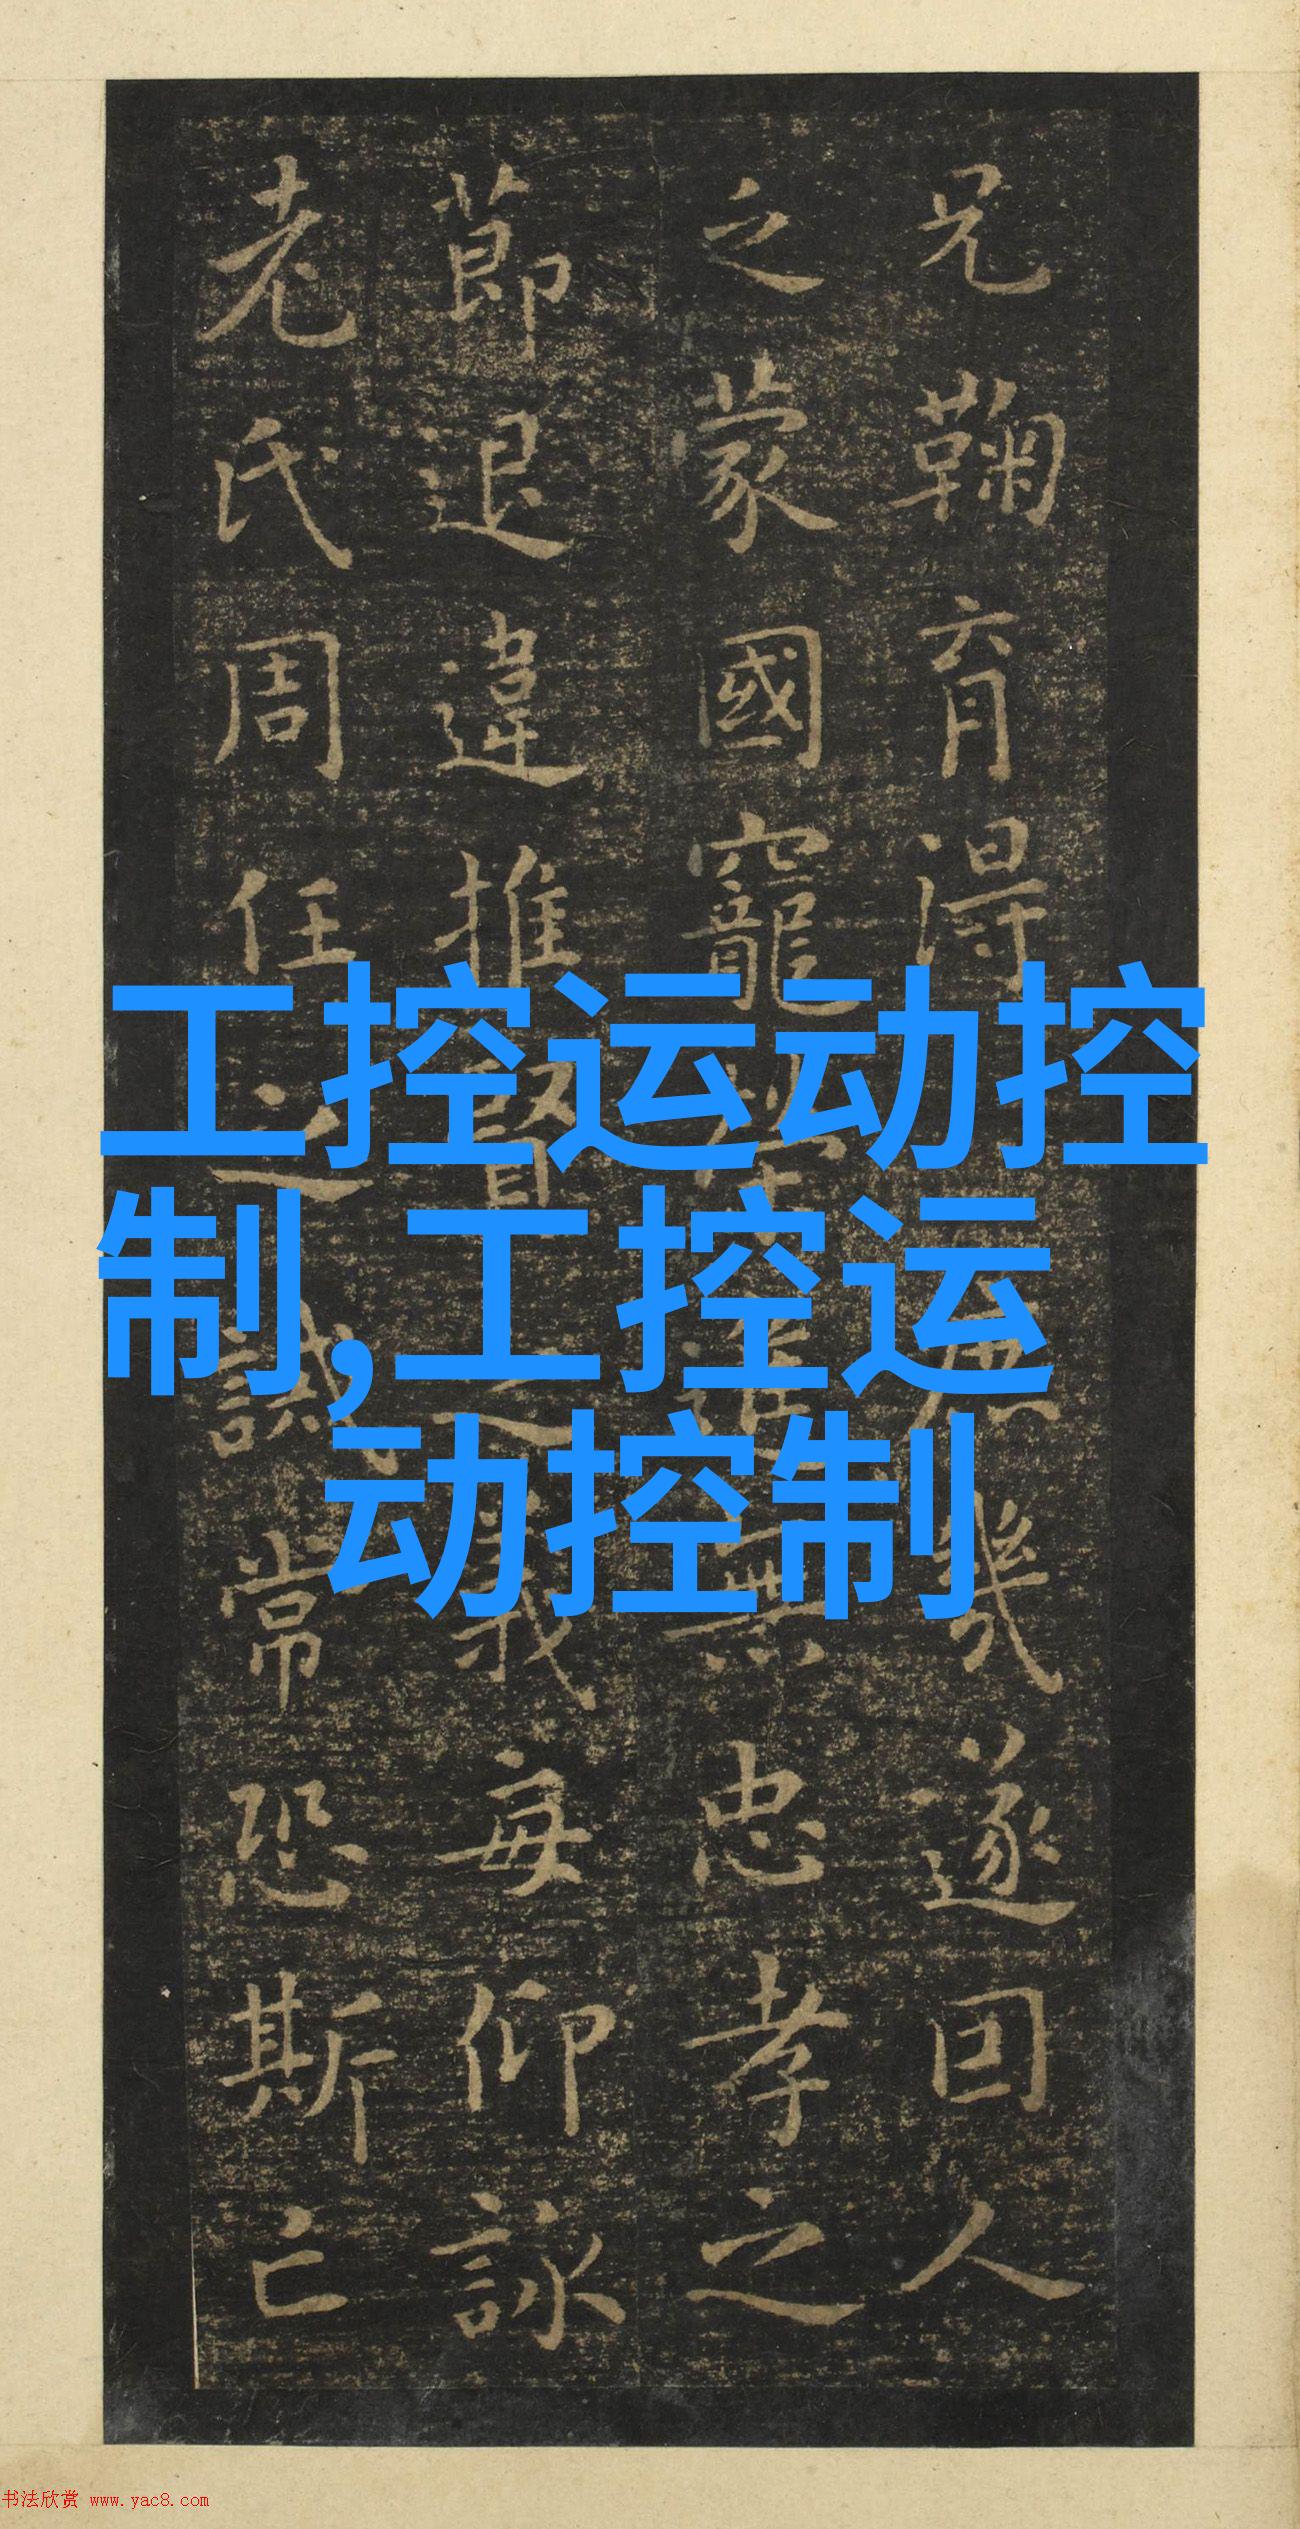 兄鞠育得庶幾遂回人
之蒙國寵進無忠孝之
莭退違推賢之義每仰詠
老氏周任之誡常恐斯亡
工控运动控
制,工控运
动控制
书法欣赏 www.yac8.com